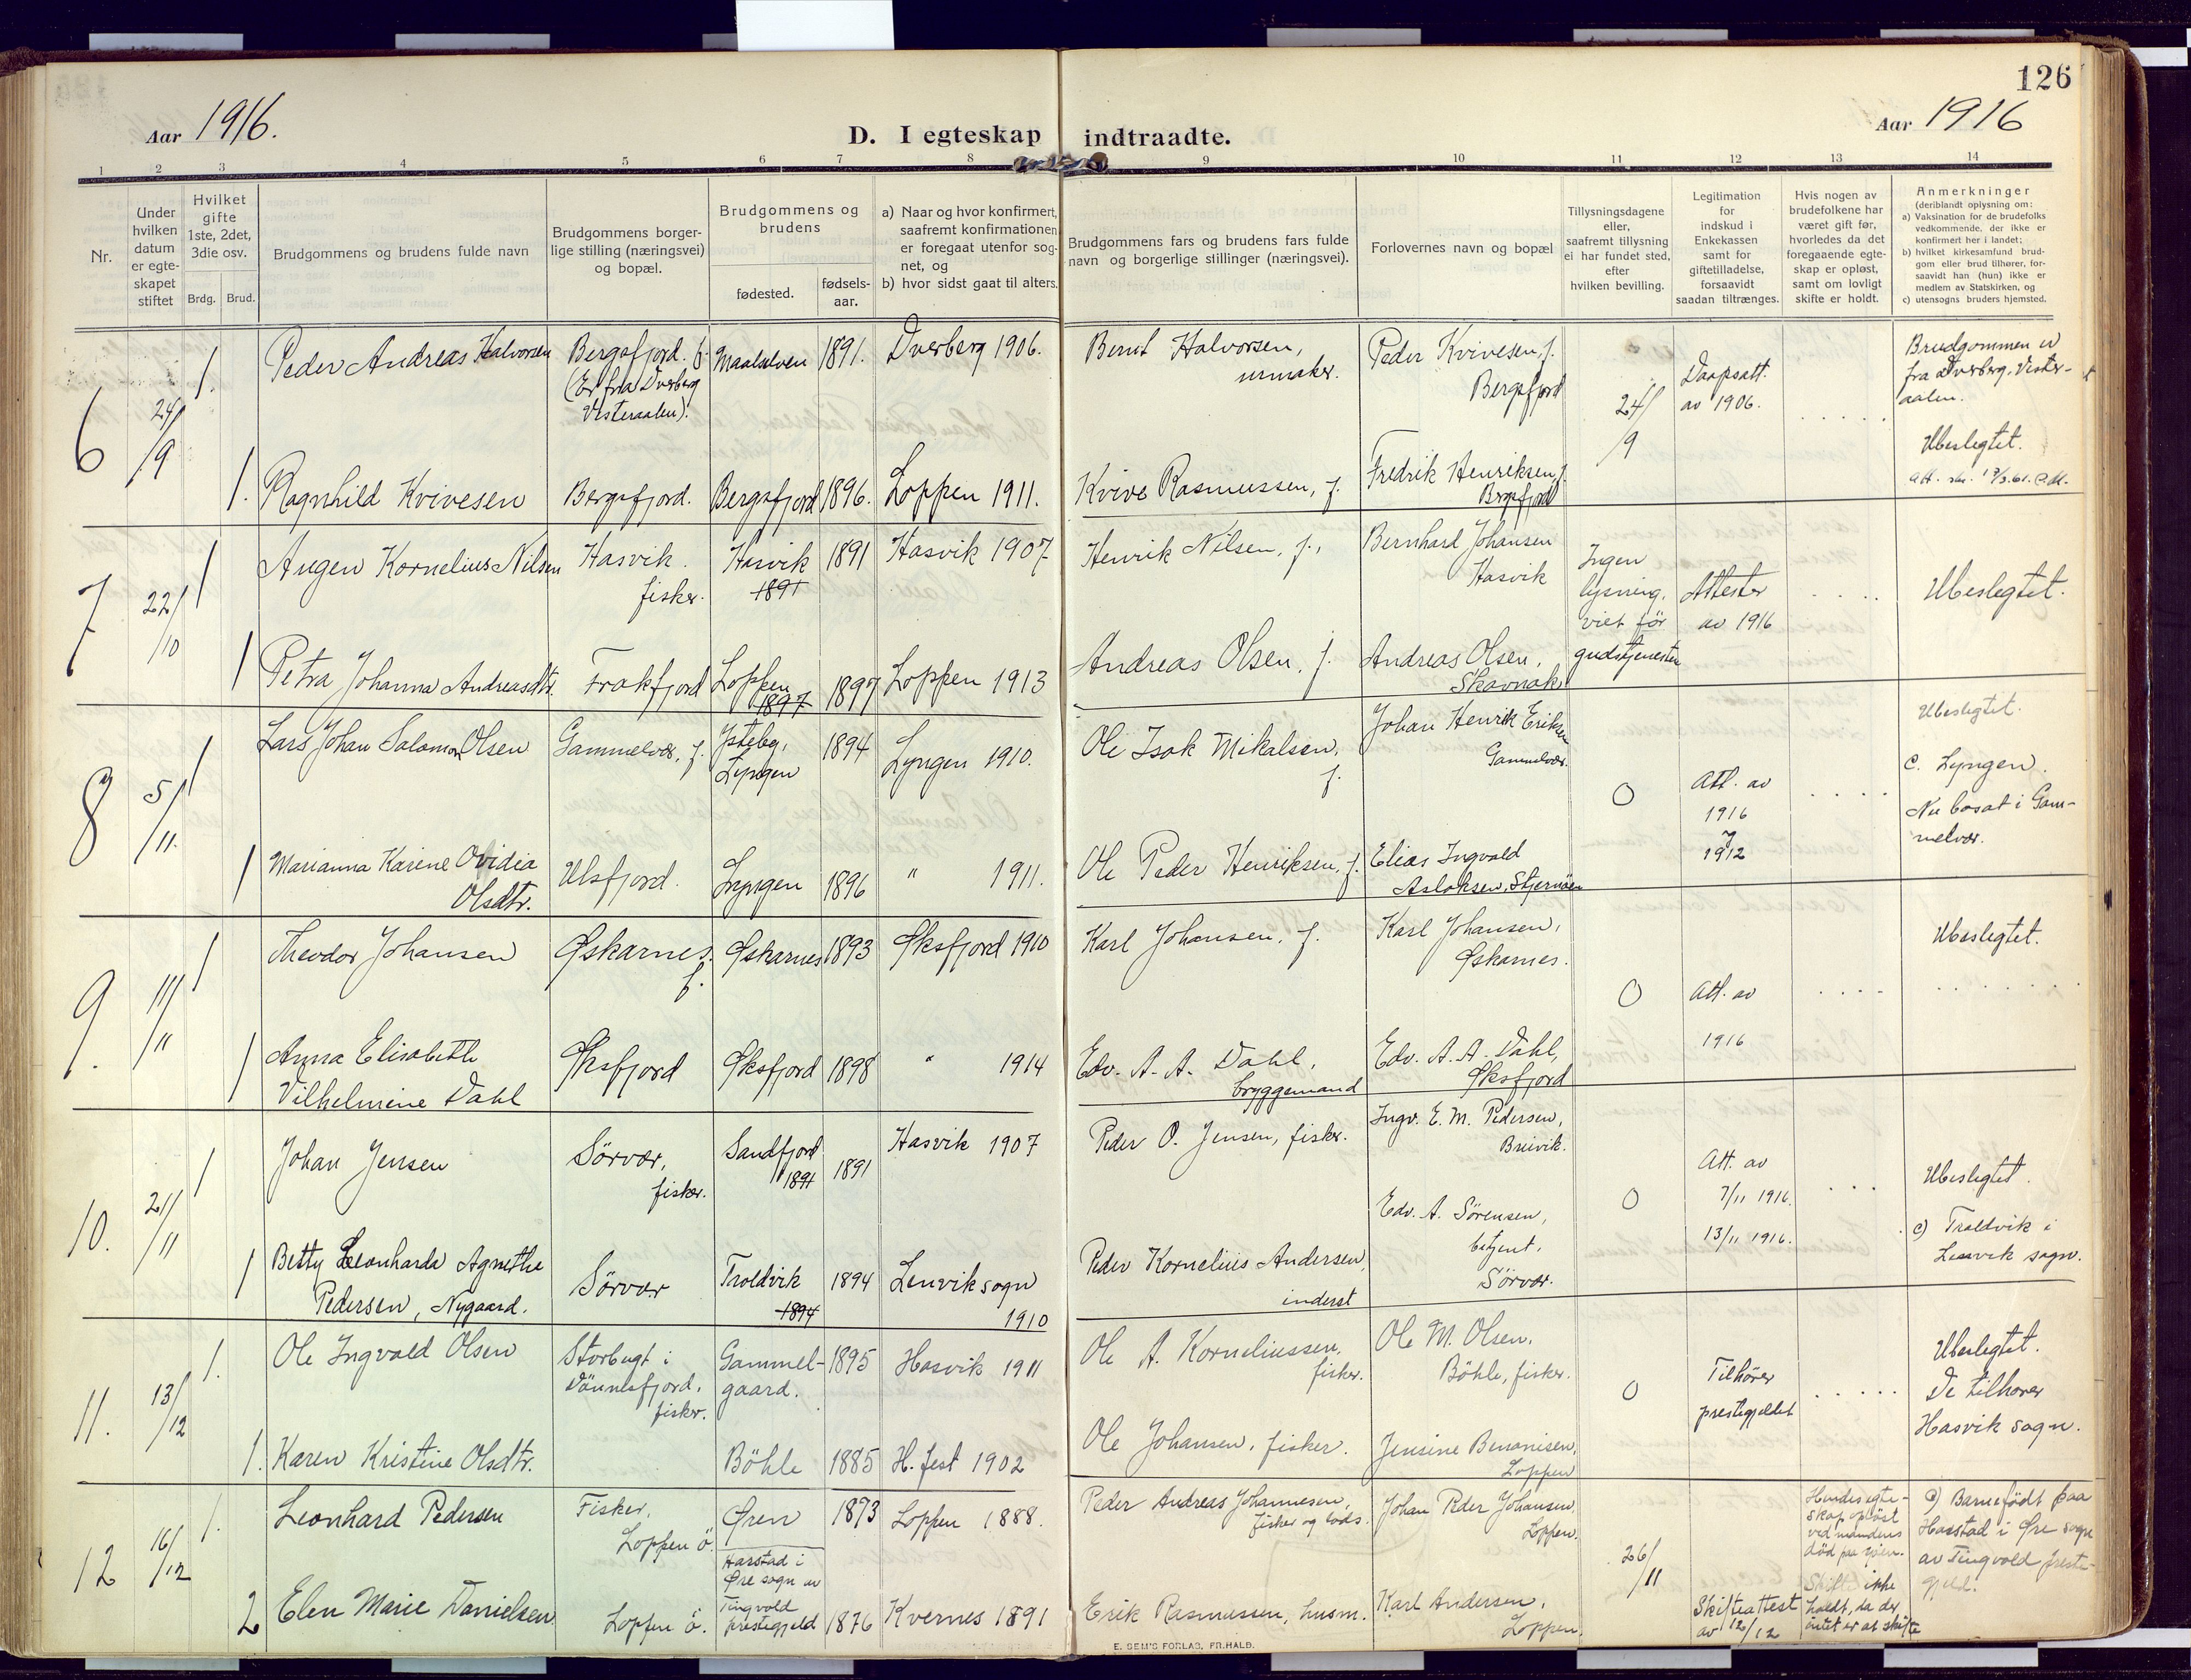 126
Aar 1916.
D. I egteskap indtraadte.
Aar 1916
1 2 3 4 5 6 7 8 9 10 11 12 13 14
Nr.
Under hvilken datum er egteskapet stiftet
Hvilket gifte 1ste, 2det, 3die osv.
Brdg. Brud.
Brudgommens og brudens fulde navn
Brudgommens borgerlige stilling (næringsvei) og bopæl.
Brudgommens og brudens
fødested.
fødselsaar.
a) Naar og hvor konfirmert, saafremt konfirmationen er foregaat utenfor sognet, og
b) hvor sidst gaat til alters.
Brudgommens fars og brudens fars fulde navn og borgerlige stillinger (næringsvei).
Forlovernes navn og bopæl
Tillysningsdagene eller, saafremt tillysning ei har fundet sted, efter hvilken bevilling.
Legitimation for indskud i Enkekassen samt for giftetilladelse, forsaavidt saadan tiltrænges.
Hvis nogen av brudefolkene har været gift før, hvorledes da det foregaaende egteskap er opløst, samt om lovligt skifte er holdt.
Anmerkninger
(deriblandt oplysning om:
a) Vaksination for de brudefolks vedkommende, der ikke er konfirmert her i landet;
b) hvilket kirkesamfund brudgom eller brud tilhører, forsaavidt han (hun) ikke er medlem av Statskirken, og
c) utensogns bruders hjemsted.
6 24/9
1. Peder Andreas Halvorsen Bergsfjord. f. (Er fra Dverberg Vesteraalen). Maalselven 1891. Dverberg 1906. Bernt Halvorsen, urmaker. Peder Kvivesen, f. Bergsfjord
24/9 Daapsatt. av 1906. . . . . .
Brudgommen er fra Dverberg. Vesteraalen.
Ubeslegtet.
1. Ragnhild Kvivesen Bergsfjord. Bergsfjord 1896. Loppen 1911. Kvive Rasmussen, f. Fredrik Henriksen, f. Bergsfjord
7 22/10
1 Augen Kornelius Nilsen Hasvik. fisker. Hasvik 1891 1891 Hasvik 1907 Henrik Nilsen, f., Bernhard Johansen Hasvik
Ingen lysning, viet før gudstjenesten Attester av 1916 . . . . Ubeslegtet.
1 Petra Johanna Andreasdtr. Frakfjord Loppen 1897 1897 Loppen 1913 Andreas Olsen, f. Andreas Olsen, Skavnak
8 5/11.
1 Lars Johan Salomon Olsen Gammelvær, f. Lyngen 1894 Lyngen 1910. Ole Isak Mikalsen, f. Johan Henrik Eriksen Gammelvær.
0 Att. av 1916 1912 . . . .
Ubeslegtet.
c. Lyngen.
Nu bosat i Gammelvær.
1 Marianna Karene Ovidia Olsdtr. Ulsfjord. Lyngen 1896 " 1911. Ole Peder Henriksen, f. Elias Ingvald Aslaksen, Stjernöen
9. 11/11
1 Theodor Johansen Øskarnes. f. Øskarnes 1893 Øksfjord 1910 Karl Johansen, f. Karl Johansen, Øskarnes.
0 Att. av 1916 . . . . Ubeslegtet. . . . . . .
1 Anna Elisabeth Vilhelmine Dahl Øksfjord Øksfjord 1898 " 1914 Edv. A. A. Dahl, bryggemand Edv. A. A. Dahl, Øksfjord
10. 21/11
1 Johan Jensen Sörvær, fisker. Sandfjord 1891 1891 Hasvik 1907 Peder O. Jensen, fisker. Ingv. E. M. Pedersen, Breivik.
0 Att. av 7/11 1916. 13/11 1916. . . .
Ubeslegtet.
c) Troldvik i Lenvik sogn.
1 Betty Leonharda Agnethe Pedersen, Nygaard. Sörvær Troldvik 1894 1894 Lenvik sogn 1910 Peder Kornelius Andersen, inderst Edv. A. Sörensen, betjent, Sörvær.
11. 13/12
1. Ole Ingvald Olsen Storbugt i Dönnesfjord. fisker. Gammelgaard. 1895 Hasvik 1911 Ole A. Korneliussen, fisker. Ole M. Olsen. Böhle, fisker.
0 Tilhører prestegjeldet . . . . .
Ubeslegtet.
De tilhører Hasvik sogn.
1. Karen Kristine Olsdtr. Böhle 1885 H.fest 1902 Ole Johansen, fisker. Jensine Benonisen, Loppen
12 16/12
1. Leonhard Pedersen Fisker, Loppen ö. Øren 1873 Loppen 1888. Peder Andreas Johannesen, fisker og lods. Johan Peder Johansen, Loppen.
26/11 Skifteattest av 12/12
Hendes egteskap opløst ved mandens död paa sjöen. Skifte ikke holdt, da der intet er at skifte
c) Barnefödt paa Harstad i Øre sogn av Tingvold prestegjeld.
2 Elen Marie Danielsen Loppen ö. Harstad i Øre sogn av Tingvold prestegjeld 1876 Kvernes 1891 Erik Rasmussen, husm. Karl Andersen, Loppen.
E. SEM'S FORLAG, FR.HALD.